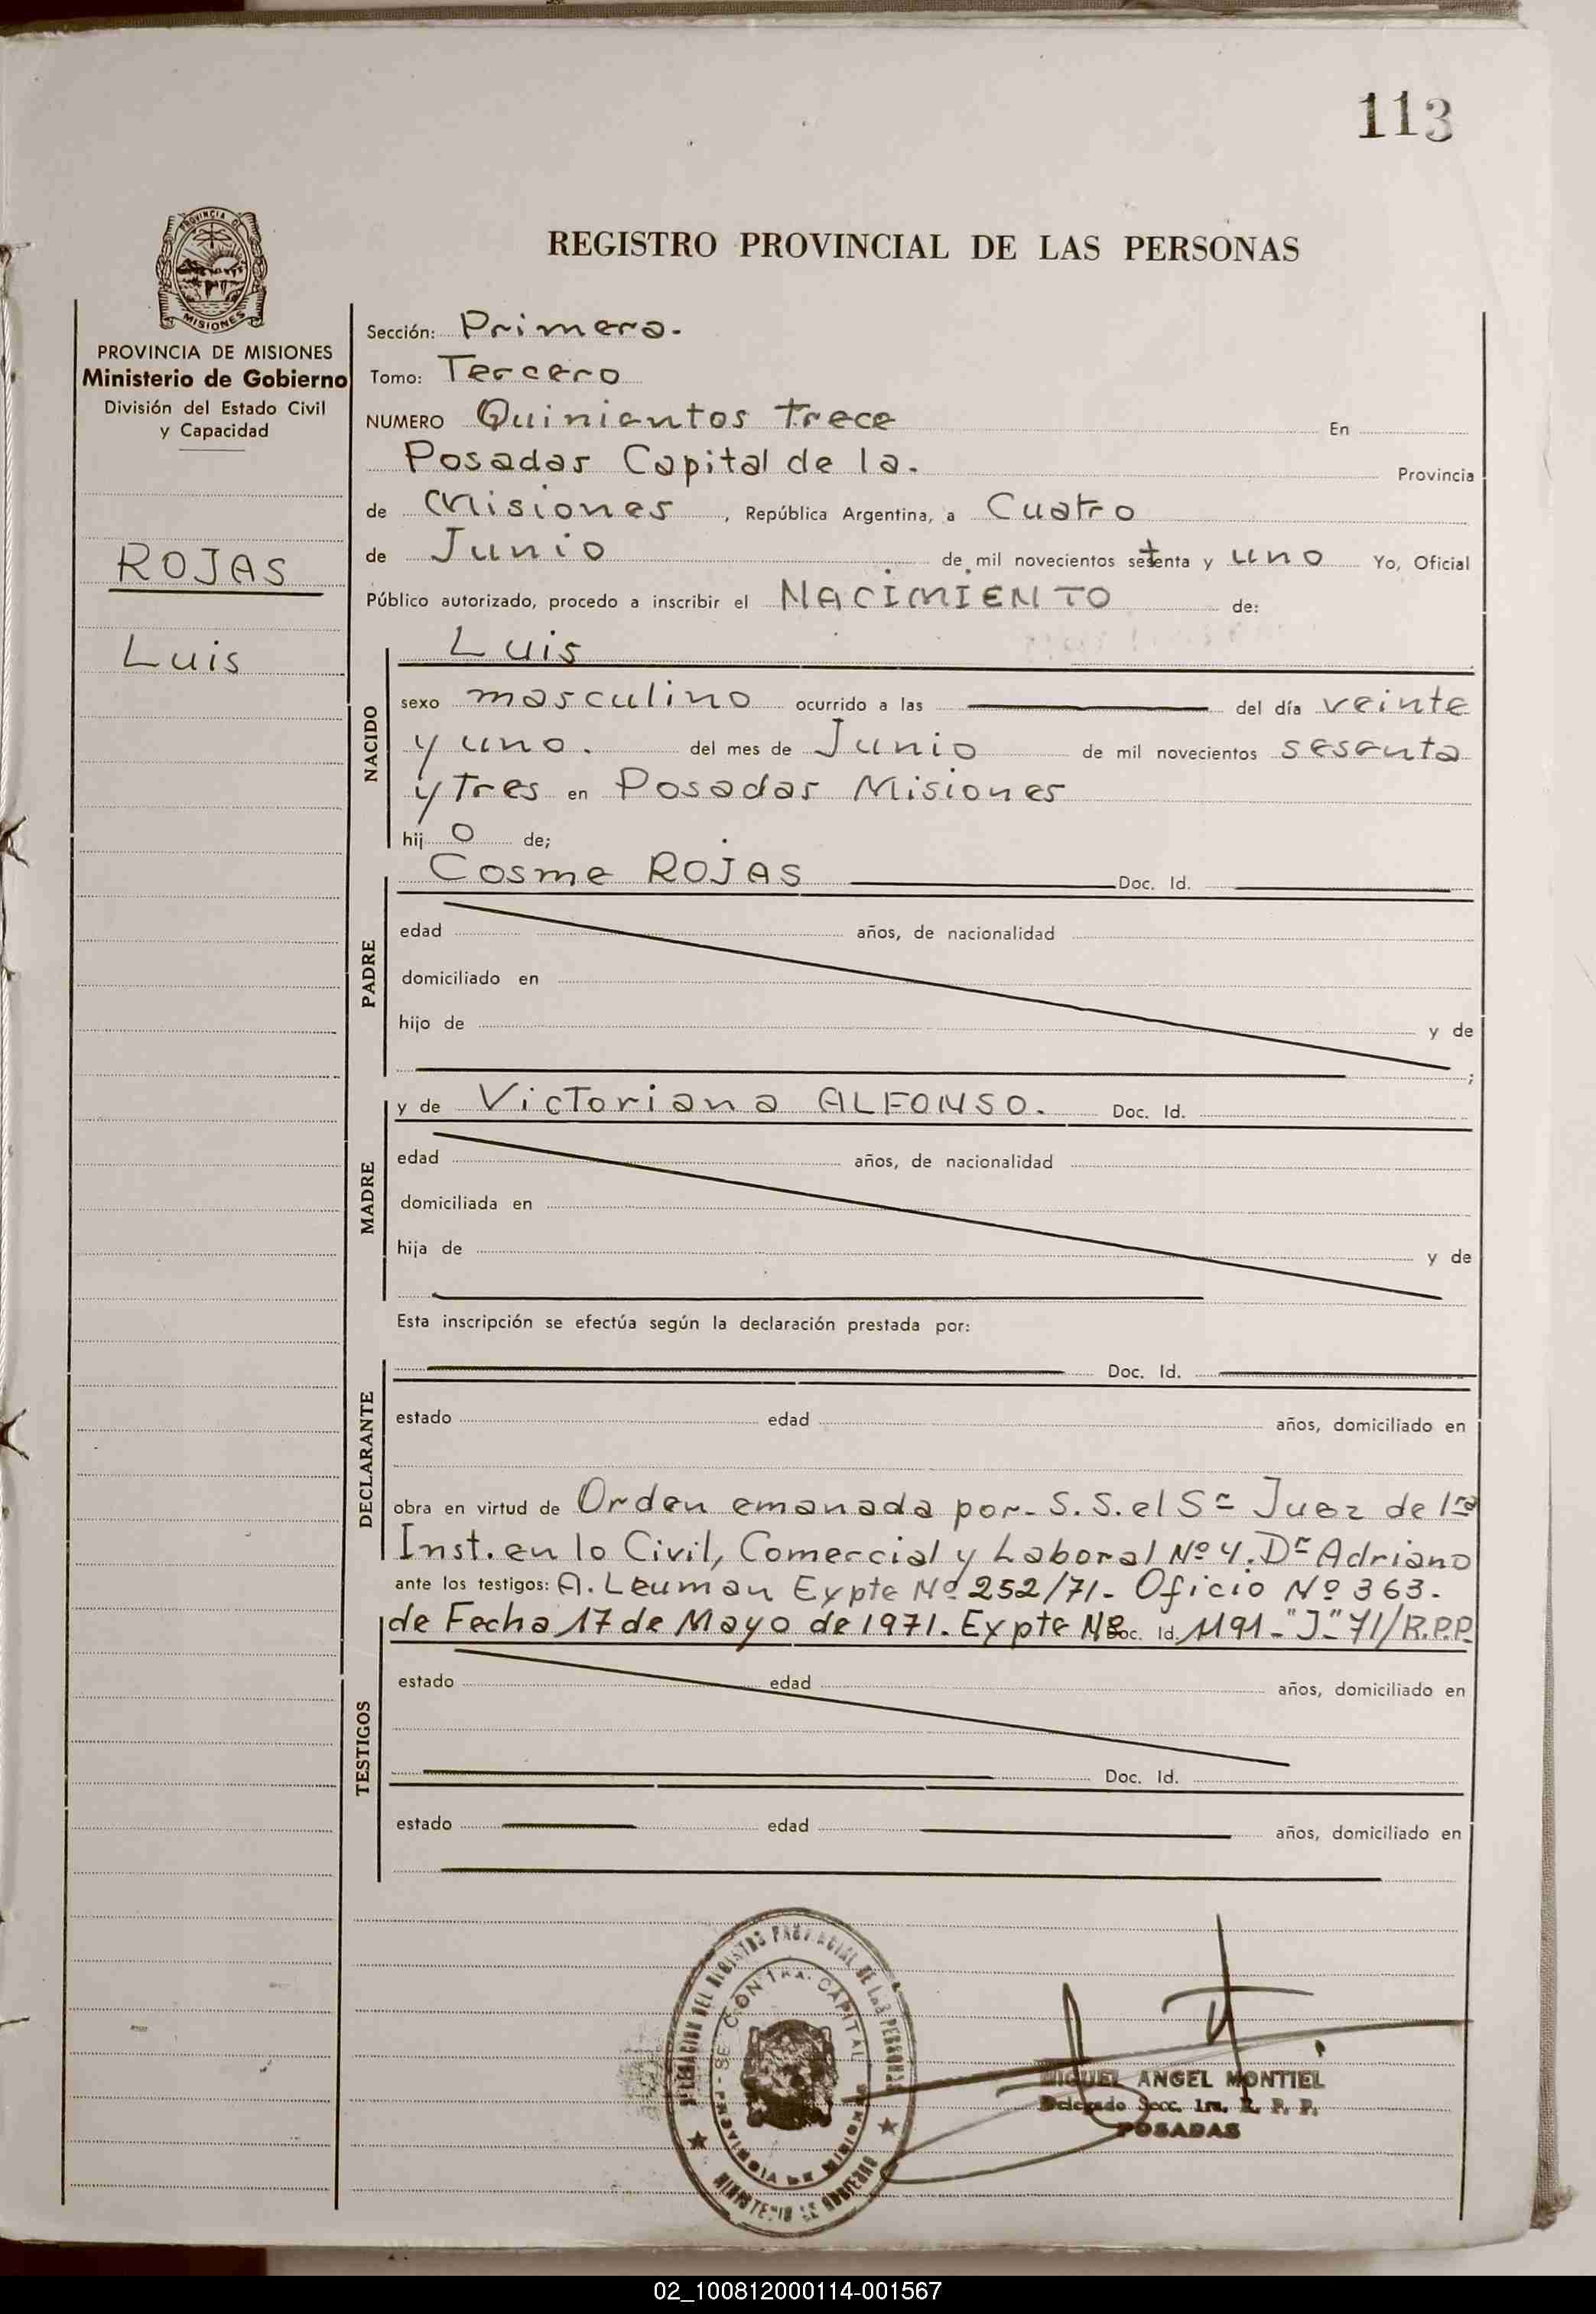 113
PROVINCIA DE MISIONES
REGISTRO PROVINCIAL DE LAS PERSONAS
PROVINCIA DE MISIONES
Ministerio de Gobierno
División del Estado Civil
y Capacidad
ROJAS
Luis
Sección: Primera.
Tomo: Tercero
NUMERO Quinientos Trece En
Posadas Capital de la. Provincia
de Misiones, República Argentina, a Cuatro
de Junio de mil novecientos setenta y uno Yo, Oficial
Público autorizado, procedo a inscribir el NACIMIENTO de:
NACIDO
Luis
sexo masculino ocurrido a las del día veinte
y uno. del mes de Junio de mil novecientos sesenta
y Tres en Posadas Misiones
hijo de;
PADRE
Cosme ROJAS Doc. Id.
edad años, de nacionalidad
domiciliado en
hijo de y de
;
MADRE
y de Victoriana ALFONSO. Doc. Id.
edad años, de nacionalidad
domiciliada en
hija de y de
Esta inscripción se efectúa según la declaración prestada por:
DECLARANTE
Doc. Id.
estado edad años, domiciliado en
obra en virtud de Orden emanada por- S.S. el Sr Juez de 1ra
Inst. en lo Civil, Comercial y Laboral Nº 4. Dr Adriano
ante los testigos: A. Leuman Expte Nº 252/71- Oficio Nº 363.
de Fecha 17 de Mayo de 1971. Expte Nº Doc. Id. 1191-"J"-71/R.P.P.
TESTIGOS
estado edad años, domiciliado en
Doc. Id.
estado edad años, domiciliado en
DELEGACION DEL REGISTRO PROVINCIAL DE LAS PERSONAS
CAPITAL
PROVINCIA DE MISIONES
MINISTERIO DE GOBIERNO
MIGUEL ANGEL MONTIEL
Delegado Secc. 1ra. R. P. P.
POSADAS
02_100812000114-001567